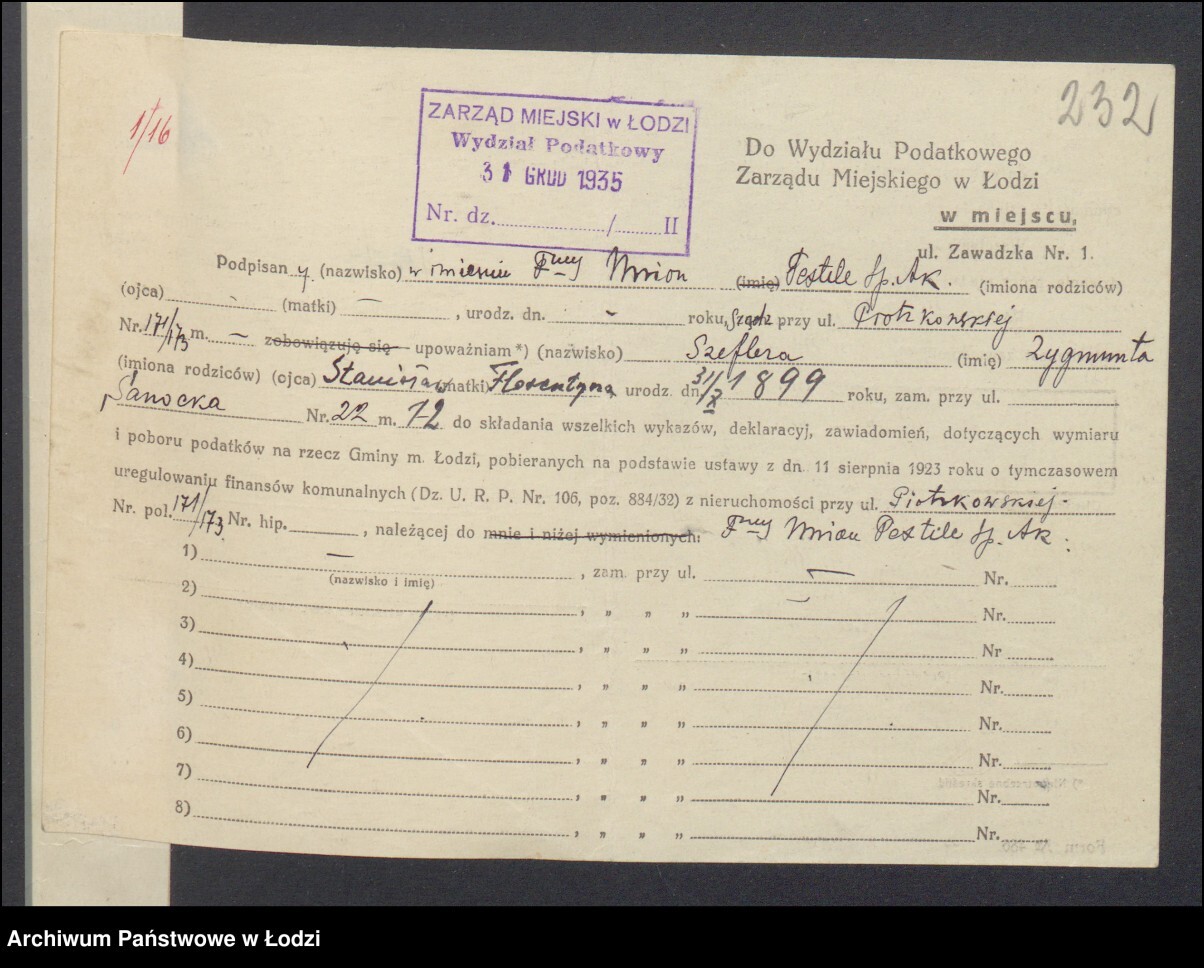 232
1/16
ZARZĄD MIEJSKI w ŁODZI
Wydział Podatkowy
31 GRUD 1935
Nr. dz. / II
Do Wydziału Podatkowego
Zarządu Miejskiego w Łodzi
w miejscu,
ul. Zawadzka Nr. 1.
Podpisany (nazwisko) w imieniu Fmy Union (imię) Textile Sp. Ak. (imiona rodziców)
(ojca) (matki) — , urodz. dn. - roku, przy ul. Piotrkowskiej
Nr. 171/173 m. — zobowiązuję się upoważniam*) (nazwisko) Szeflera (imię) Zygmunta
(imiona rodziców) (ojca) Stanisław (matki) Florentyna urodz. dn. 31/X 1899 roku, zam. przy ul.
Sanocka Nr. 22 m. 12 do składania wszelkich wykazów, deklaracyj, zawiadomień, dotyczących wymiaru
i poboru podatków na rzecz Gminy m. Łodzi, pobieranych na podstawie ustawy z dn. 11 sierpnia 1923 roku o tymczasowem
uregulowaniu finansów komunalnych (Dz. U. R. P. Nr. 106, poz. 884/32) z nieruchomości przy ul. Piotrkowskiej
Nr. pol. 171/173 Nr. hip. , należącej do mnie i niżej wymienionych: Fmy Union Textile Sp. Ak.
1) — , zam. przy ul. — Nr.
(nazwisko i imię)
2) , „ „ „ — Nr.
3) , „ „ „ Nr
4) , „ „ „ Nr.
5) , „ „ „ Nr.
6) , „ „ „ Nr.
7) , „ „ „ Nr.
8) , „ „ „ Nr.
Archiwum Państwowe w Łodzi